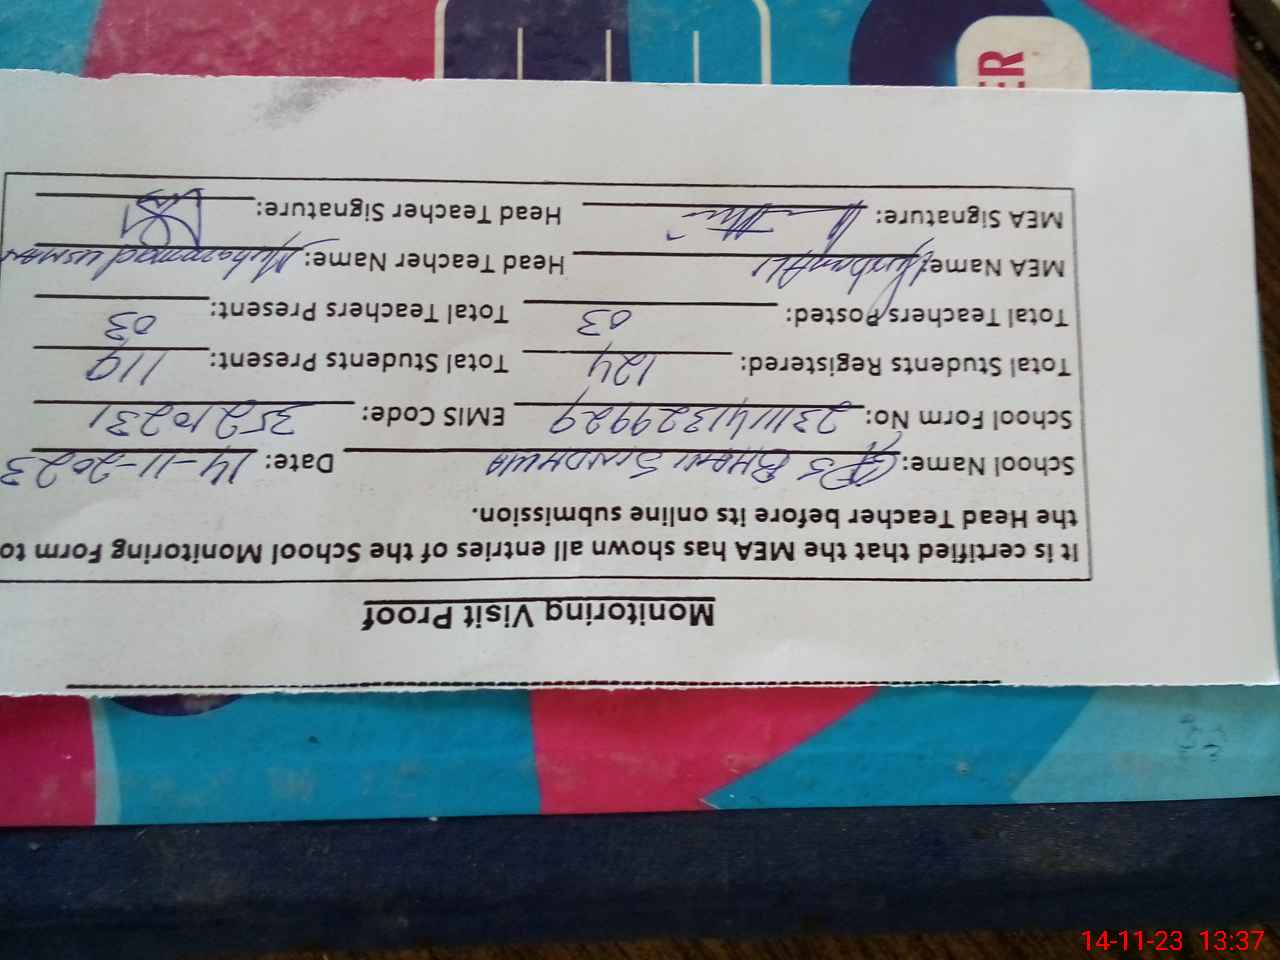 Monitoring Visit Proof
It is certified that the MEA has shown all entries of the School Monitoring Form to
the Head Teacher before its online submission.
School Name: GPS BHANI SINDHWA Date: 14-11-2023
School Form No: 2311141329929 EMIS Code: 35210231
Total Students Registered: 124 Total Students Present: 119
Total Teachers Posted: 03 Total Teachers Present: 03
MEA Name: Ali Head Teacher Name: Muhammad USMAN
MEA Signature: Head Teacher Signature:
ER
14-11-23 13:37